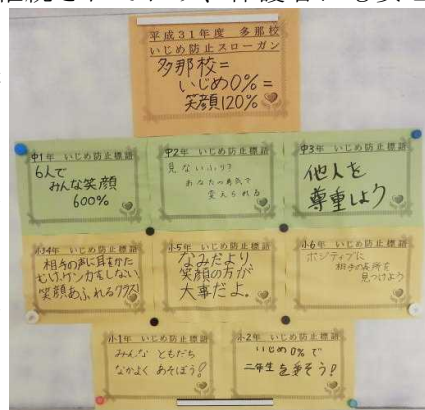 平成31年度 多那校
いじめ防止スローガン
多那校=
いじめ0%=
笑顔120%
中1年 いじめ防止標語
6人で
みんな笑顔
600%
中2年 いじめ防止標語
見ないふり?
あなたの勇気で
変えられる
中3年 いじめ防止標語
他人を
尊重しよう
小34年 いじめ防止標語
相手の声に耳をかた
むけ、ケンカをしない、
笑顔あふれるクラス!
小5年 いじめ防止標語
なみだより、
笑顔の方が
大事だよ。
小6年 いじめ防止標語
ポジティブに
相手の長所を
見つけよう
小1年 いじめ防止標語
みんな ともだち
なかよく あそぼう!
小2年 いじめ防止標語
いじめ0%で
二年生